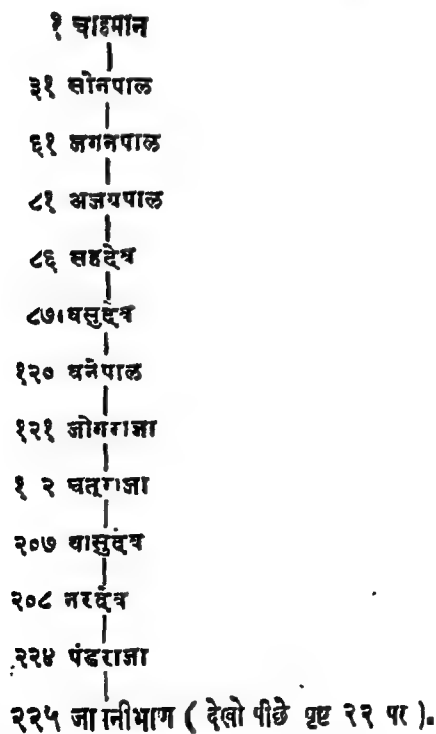 १ चाहमान
३१ सोनपाल
६१ जगनपाल
८१ अजयपाल
८६ सहदेव
८७ वसुदेव
१२० धनपाल
१२१ जोगराजा
१ २ चतूराजा
२०७ वासुदेव
२०८ नरदेव
२२४ पंडराजा
२२५ (देखो पीछे पृष्ट २२ पर).